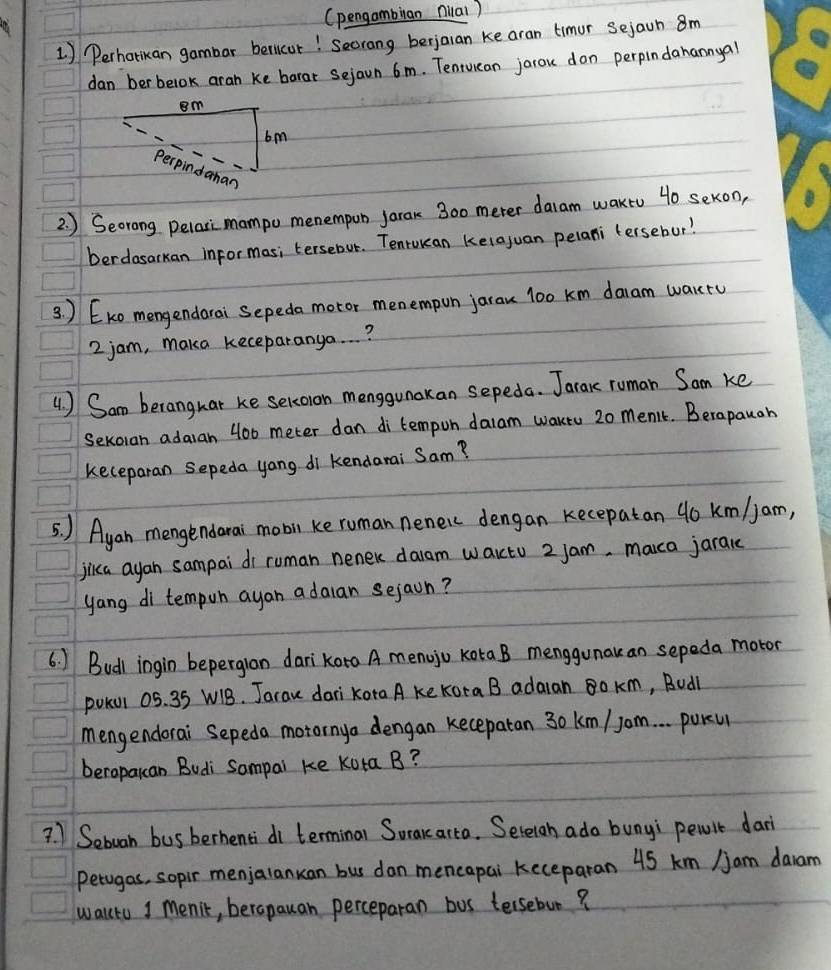 (pengambilan nilai)
1.) Perhatikan gambar berikut! Seorang berjalan ke arah timur sejauh 8m
dan berbelok arah ke barat sejauh 6m. Tentukan jarak dan perpindahannya!
8m
6m
Perpindahan
2.) Seorang pelari mampu menempuh jarak 300 meter dalam waktu 40 sekon,
berdasarkan informasi tersebut. Tentukan kelajuan pelari tersebut!
3.) Eko mengendarai sepeda motor menempuh jarak 100 km dalam waktu
2 jam, maka keceparanya...?
4.) Sam berangkat ke sekolah menggunakan sepeda. Jarak rumah Sam ke
sekolah adalah 400 meter dan di tempuh dalam waktu 20 menit. Berapakah
kecepatan sepeda yang di kendarai Sam?
5.) Ayah mengendarai mobil ke rumah nenek dengan kecepatan 40 km/jam,
jika ayah sampai di rumah nenek dalam waktu 2 jam. maka jarak
yang di tempuh ayah adalah sejauh?
6.) Budi ingin bepergian dari kota A menuju kota B menggunakan sepeda motor
pukul 05.35 WIB. Jarak dari kota A ke kota B adalah 80 km, Budi
mengendarai sepeda motornya dengan kecepatan 30 km/jam... pukul
berapakan Budi sampai ke kota B?
7.) Sebuah bus berhenti di terminal Surakarta. Setelah ada bunyi pewit dari
petugas, sopir menjalankan bus dan mencapai kecepatan 45 km/jam dalam
waktu 1 menit, berapakah percepatan bus tersebut?